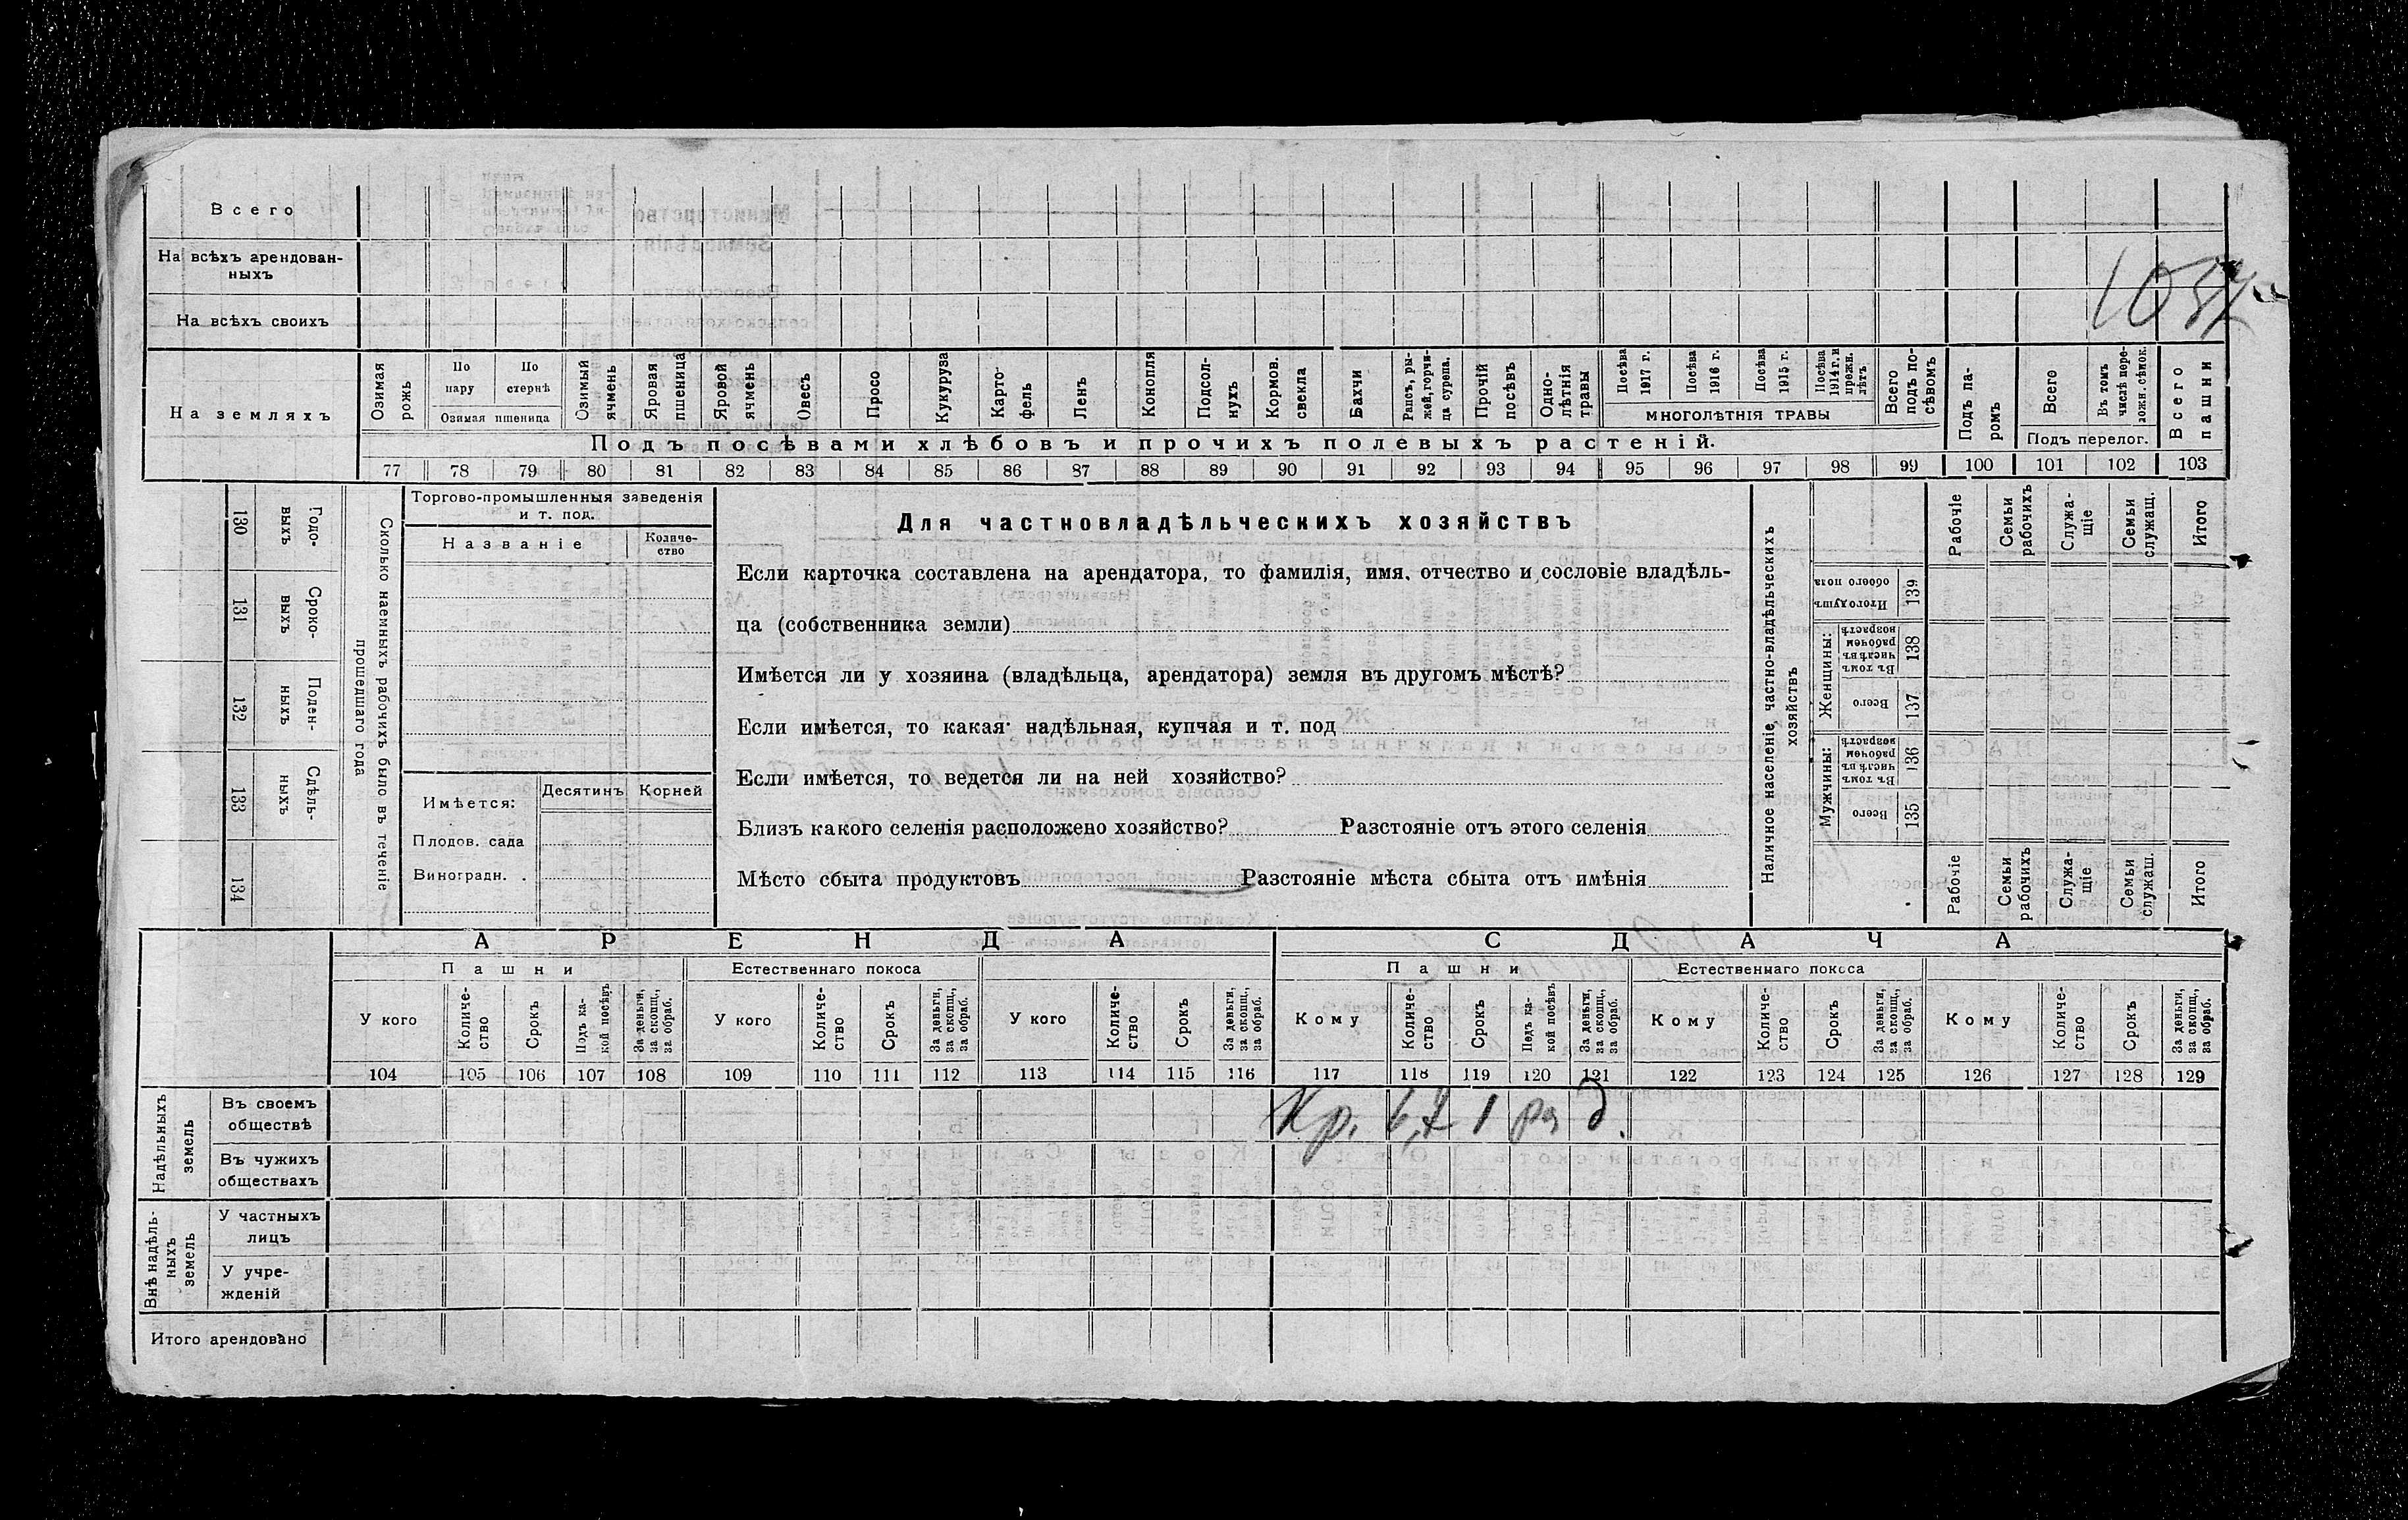 Всего
На всѣхъ арендован-
ныхъ
На всѣхъ своихъ
На земляхъ
Озимая рожь
По пару
По стернѣ
Озимая пшеница
Озимый ячмень
Яровая пшеница
Яровой ячмень
Овесъ
Просо
Кукуруза
Карто-
фель
Ленъ
Конопля
Подсол-
нухъ
Кормов. свекла
Бахчи
Рапсъ, ры-
жей, горчи-
ца сурепа.
Прочій посѣвъ
Одно-
лѣтнія травы
Посѣва 1917 г.
Посѣва 1916 г.
Посѣва 1915 г.
Посѣва 1914 г. и прежн. лѣтъ
многолѣтнія травы
Всего подъ по-
сѣвомъ
Подъ па-
ромъ
Всего
Въ томъ числѣ пере-
ложн. сѣнок.
Подъ перелог.
Всего пашни
Подъ посѣвами хлѣбовъ и прочихъ полевыхъ растеній.
77 78 79 80 81 82 83 84 85 86 87 88 89 90 91 92 93 94 95 96 97 98 99 100 101 102 103
130 Годо-
выхъ
131 Сроко-
выхъ
132 Поден-
ныхъ
133 Сдѣль-
ныхъ
134
Сколько наемныхъ рабочихъ было въ теченіе
прошедшаго года
Торгово-промышленныя заведенія
и т. под.
Названіе
Количе-
ство
Имѣется:
Десятинъ
Корней
Плодов. сада
Виноградн. .
Для частновладѣльческихъ хозяйствъ
Если карточка составлена на арендатора, то фамилія, имя, отчество и сословіе владѣль-
ца (собственника земли)
Имѣется ли у хозяина (владѣльца, арендатора) земля въ другомъ мѣстѣ?
Если имѣется, то какая: надѣльная, купчая и т. под
Если имѣется, то ведется ли на ней хозяйство?
Близъ какого селенія расположено хозяйство? Разстояніе отъ этого селенія
Мѣсто сбыта продуктовъ Разстояніе мѣста сбыта отъ имѣнія
Наличное населеніе, частно-владѣльческихъ
хозяйствъ
Рабочіе
Семьи рабочихъ
Служа-
щіе
Семьи служащ.
Итого
Итого душъ обоего пола 139
Женщины:
Въ томъ числѣ въ рабочемъ возрастѣ 138
Всего 137
Мужчины:
Въ томъ числѣ въ рабочемъ возрастѣ 136
Всего 135
Рабочіе
Семьи рабочихъ
Служа-
щіе
Семьи служащ.
Итого
АРЕНДА
СДАЧА
Пашни
Естественнаго покоса
Пашни
Естественнаго покоса
У кого
Количе-
ство
Срокъ
Подъ ка-
кой посѣвъ
За деньги, за скопщ., за обраб.
У кого
Количе-
ство
Срокъ
За деньги, за скопщ., за обраб.
У кого
Количе-
ство
Срокъ
За деньги, за скопщ., за обраб.
Кому
Количе-
ство
Срокъ
Подъ ка-
кой посѣвъ
За деньги, за скопщ., за обраб.
Кому
Количе-
ство
Срокъ
За деньги, за скопщ., за обраб.
Кому
Количе-
ство
Срокъ
За деньги, за скопщ., за обраб.
104 105 106 107 108 109 110 111 112 113 114 115 116 117 118 119 120 121 122 123 124 125 126 127 128 129
Надѣльныхъ земель
Въ своемъ
обществѣ
Кр. 6,7 1 д.
Въ чужихъ
обществахъ
Внѣ надѣль-
ныхъ земель
У частныхъ
лицъ
У учре-
жденій
Итого арендовано